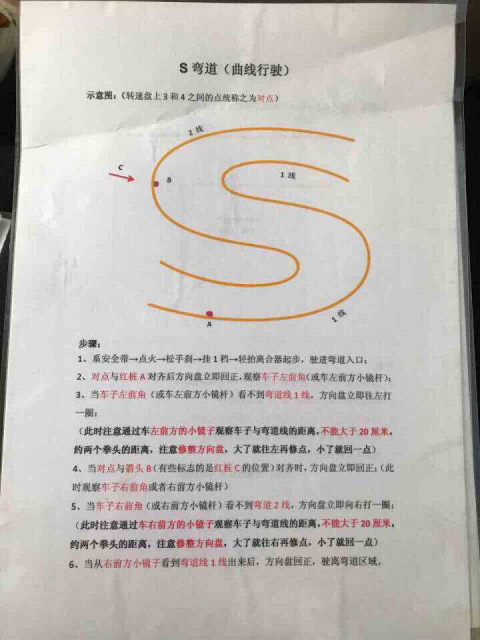 S 弯道（曲线行驶）
示意图：（转速盘上 3 和 4 之间的点统称之为对点）
2 线
C
B
1 线
A
1 线
步骤：
1、系安全带→点火→松手刹→挂 1 档→轻抬离合器起步，驶进弯道入口；
2、对点与红桩 A 对齐后方向盘立即回正，观察车子左前角（或车左前方小镜杆）；
3、当车子左前角（或车左前方小镜杆）看不到弯道线 1 线，方向盘立即往左打
一圈；
（此时注意通过车左前方的小镜子观察车子与弯道线的距离，不能大于 20 厘米，
约两个拳头的距离，注意修整方向盘，大了就往左再修点，小了就回一点）
4、当对点与箭头 B（有些标志的是红桩 C 的位置）对齐时，方向盘立即回正；（此
时观察车子右前角或者右前方小镜杆）
5、当车子右前角（或右前方小镜杆）看不到弯道 2 线，方向盘立即向右打一圈；
（此时注意通过车右前方的小镜子观察车子与弯道线的距离，不能大于 20 厘米，
约两个拳头的距离，注意修整方向盘，大了就往右再修点，小了就回一点）
6、当从右前方小镜子看到弯道线 1 线出来后，方向盘回正，驶离弯道区域。